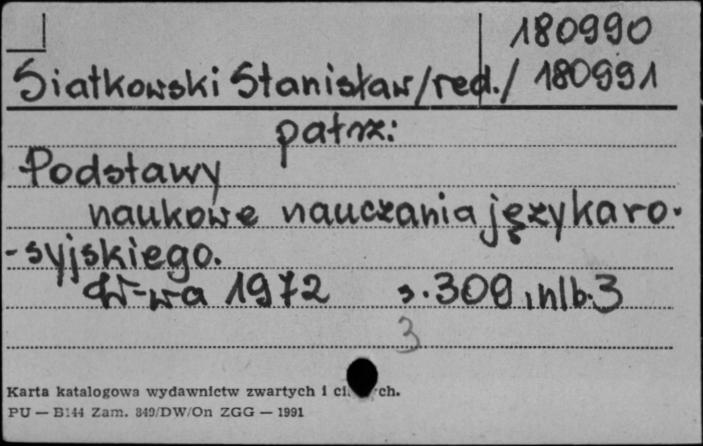 180990
Siatkowski Stanisław/red./ 180991
patrz:
Podstawy
naukowe nauczania języka ro-
-syjskiego.
W-wa 1972 s. 309, nlb. 3
3
Karta katalogowa wydawnictw zwartych i ch.
PU — B144 Zam. 849/DW/On ZGG — 1991